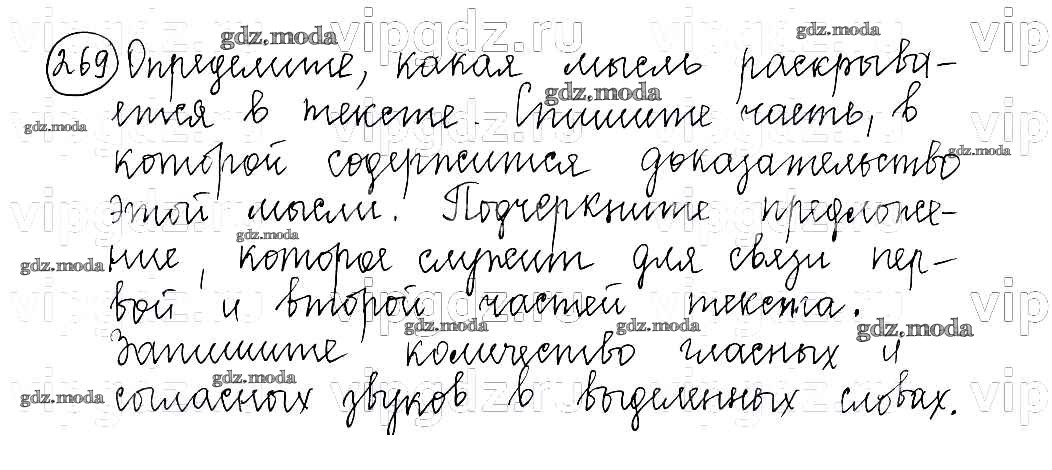 269 Определите, какая мысль раскрыва-
ется в тексте. Спишите часть, в
которой содержится доказательство
этой мысли. Подчеркните предложе-
ние, которое служит для связи пер-
вой и второй частей текста.
Запишите количество гласных и
согласных звуков в выделенных словах.